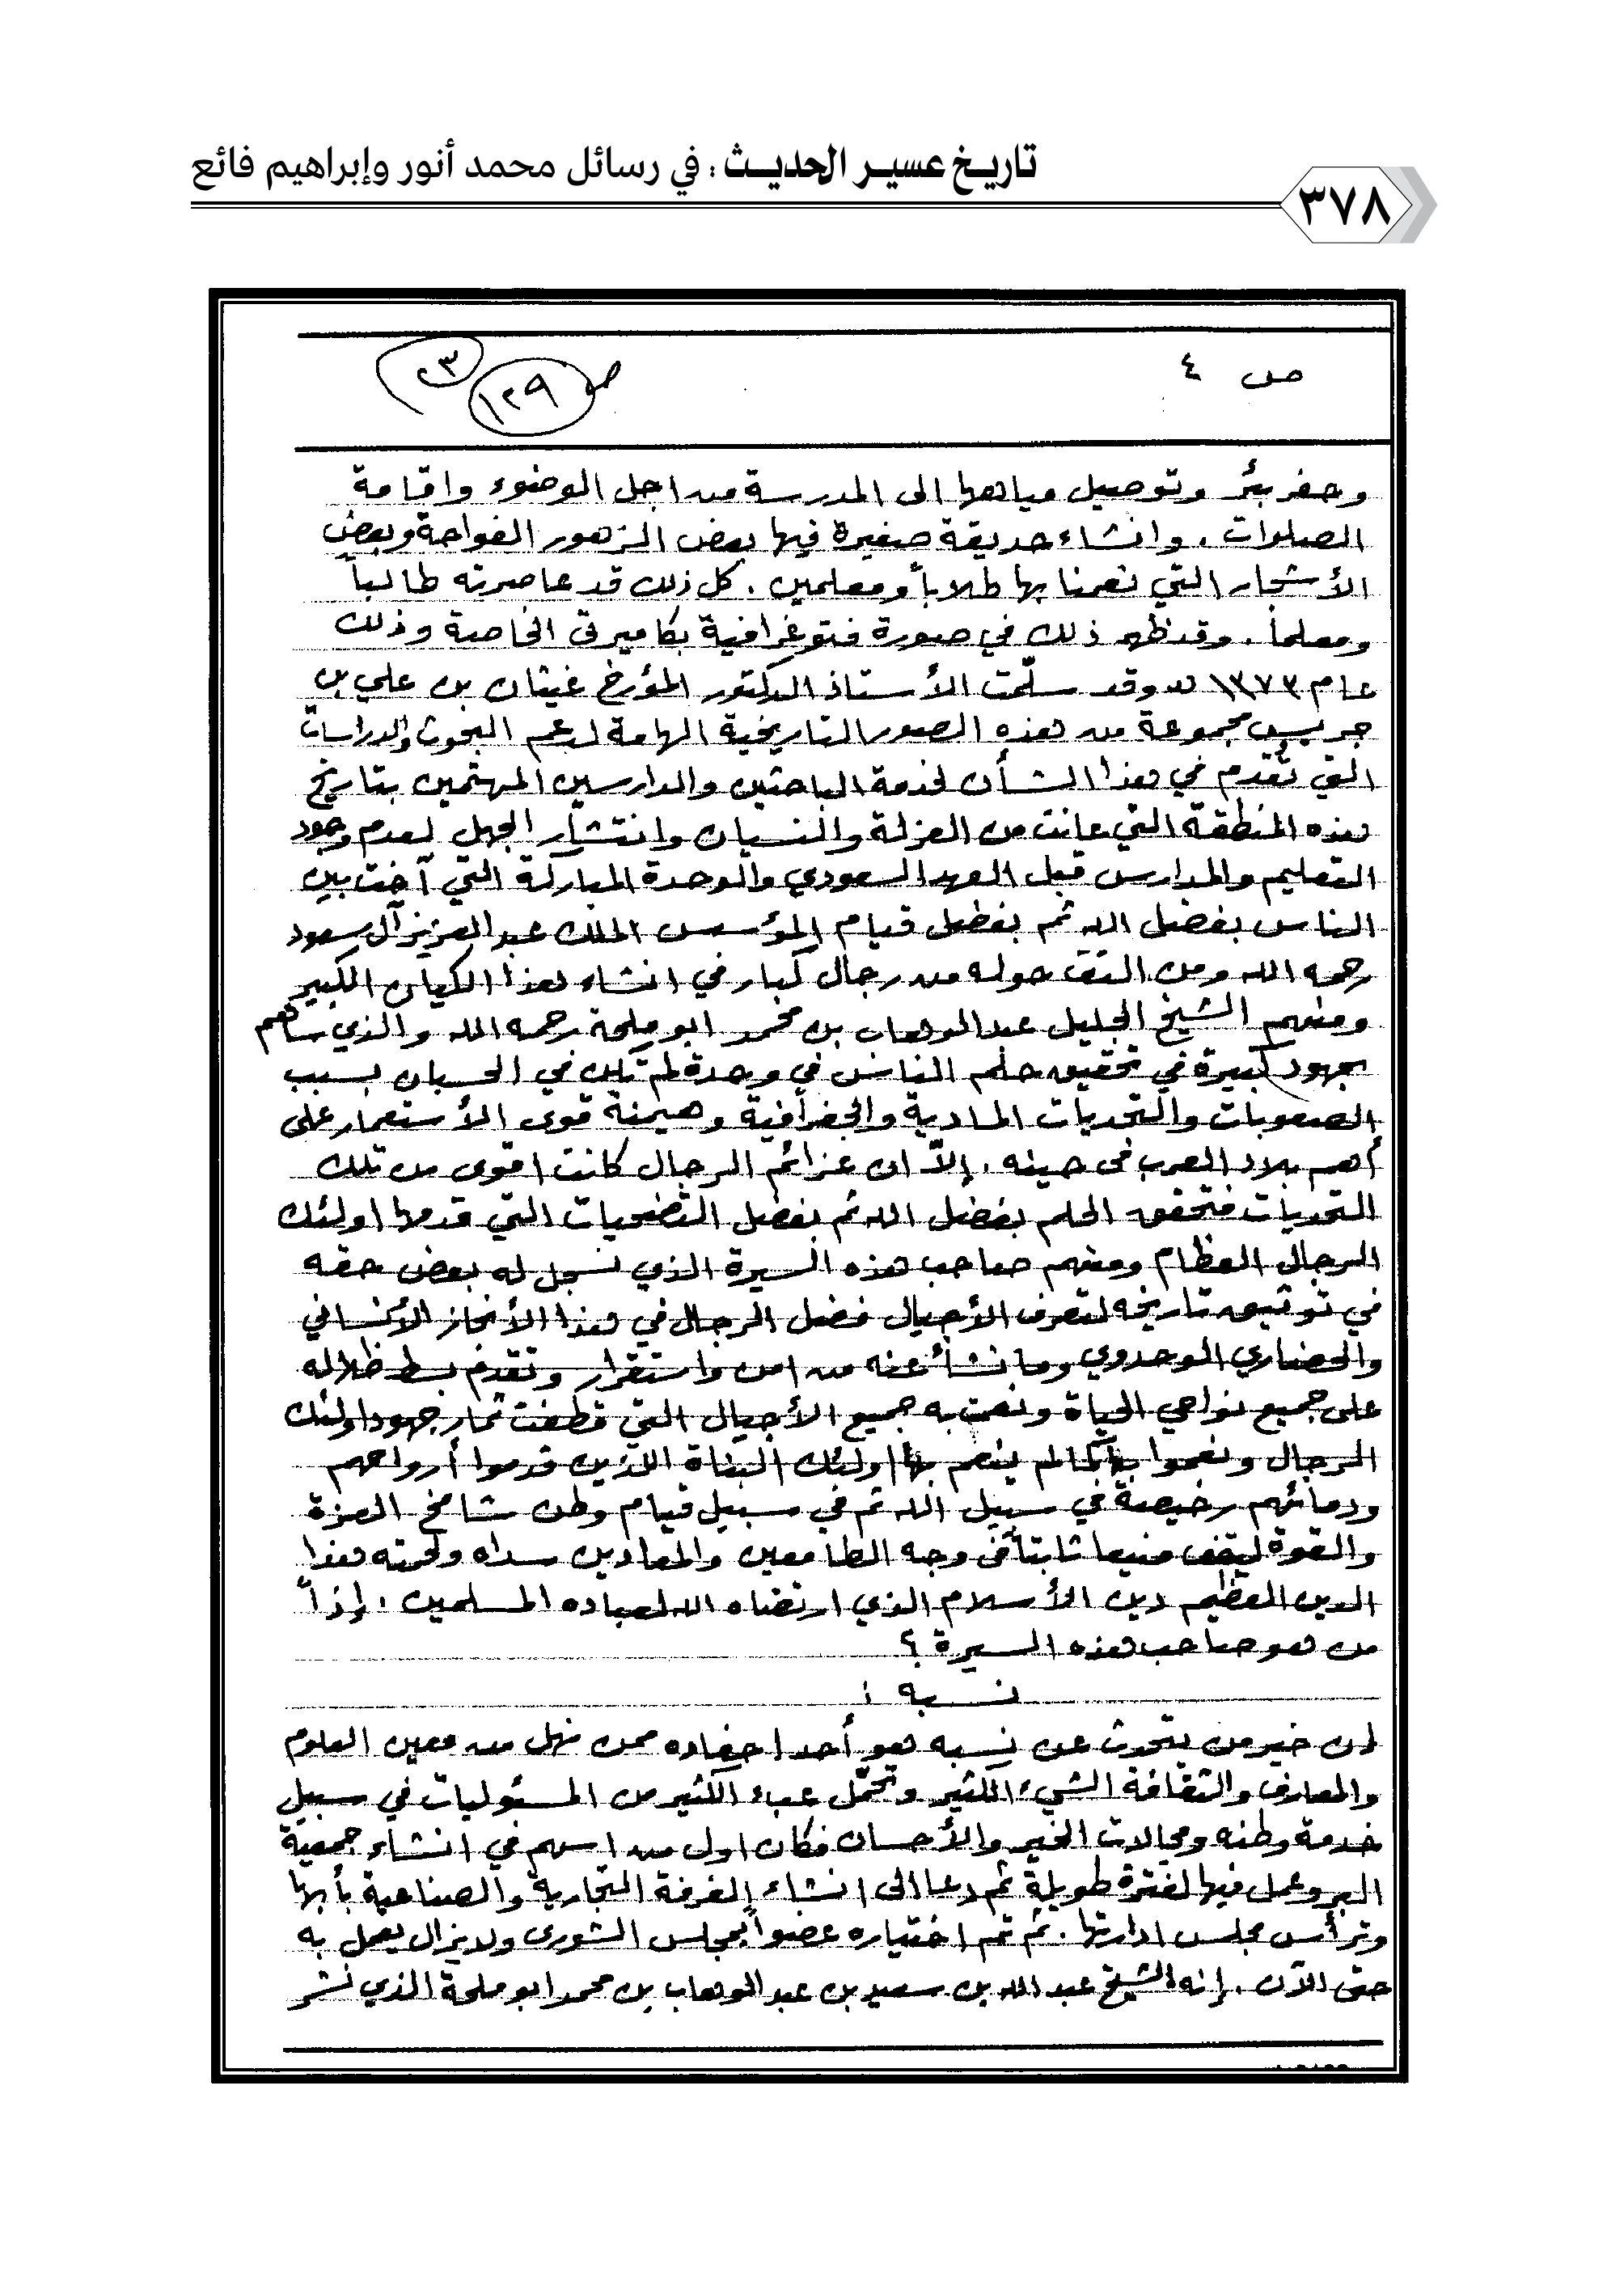 تاريخ عسير الحديث : في رسائل محمد أنور وإبراهيم فائع
٣٧٨
ص ٤
ص ١٢٩
٢٣
وحفر بئر وتوصيل مياهها الى المدرسة من اجل الوضوء واقامة
الصلوات . وانشاء حديقة صغيرة فيها بعض الزهور الفواحة وبعض
الأشجار التي نعمنا بها طلاباً ومعلمين . كل ذلك قد عاصرته طالباً
ومعلماً . وقد ظهر ذلك في صورة فتوغرافية بكاميرتي الخاصة وذلك
عام ١٣٧٣ هـ وقد سلّمت الأستاذ الدكتور المؤرخ غيثان بن علي بن
جريس مجموعة من هذه الصور التاريخية الهامة لدعم البحوث والدراسات
التي تُقدم في هذا الشأن لخدمة الباحثين والدارسين المهتمين بتاريخ
هذه المنطقة التي عانت من العزلة والنسيان وانتشار الجهل لعدم وجود
التعليم والمدارس قبل العهد السعودي والوحدة المباركة التي آخت بين
الناس بفضل الله ثم بفضل قيام المؤسس الملك عبد العزيز آل سعود
رحمه الله ومن التف حوله من رجال كبار في انشاء هذا الكيان الكبير
ومنهم الشيخ الجليل عبد الوهاب بن محمد ابو ملحة رحمه الله والذي ساهم
بجهود كبيرة في تحقيق حلم الناس في وحدة لم تكن في الحسبان بسبب
الصعوبات والتحديات المادية والجغرافية وهيمنة قوى الأستعمار على
أهم بلاد العرب في حينه . إلاّ ان عزائم الرجال كانت اقوى من تلك
التحديات فتحقق الحلم بفضل الله ثم بفضل التضحيات التي قدمها اولئك
الرجال العظام ومنهم صاحب هذه السيرة الذي نسجل له بعض حقه
في توثيق تاريخه لتعرف الأجيال فضل الرجال في هذا الأنجاز الأنساني
والحضاري الوحدوي وما نشأ عنه من امن واستقرار وتقدم بسط ظلاله
على جميع نواحي الحياة ونعمت به جميع الأجيال التي قطفت ثمار جهود اولئك
الرجال ونعموا بها كما لم ينعم بها اولئك البناة اللذين قدموا أرواحهم
ودمائهم رخيصة في سبيل الله ثم في سبيل قيام وطن شامخ العزة
والقوة ليقف منيعا ثابتاً في وجه الطامعين والمعادين سداه ولحمته هذا
الدين العظيم دين الأسلام الذي ارتضاه الله لعباده المسلمين . إذاً
من هو صاحب هذه السيرة ؟
نسبه :
ان خير من يتحدث عن نسبه هو أحد احفاده ممن نهل من معين العلوم
والمعارف والثقافة الشيء الكثير وتحمّل عباء الكثير من المسئوليات في سبيل
خدمة وطنه ومجالات الخير والأحسان فكان اول من اسهم في انشاء جمعية
البر وعمل فيها لفترة طويلة ثم دعا الى انشاء الغرفة التجارية والصناعية بأبها
وترأس مجلس ادارتها . ثم تم اختياره عضواً بمجلس الشورى ولا يزال يعمل به
حتى الآن . إنه الشيخ عبد الله بن سعيد بن عبد الوهاب بن محمد ابو ملحة الذي نشر